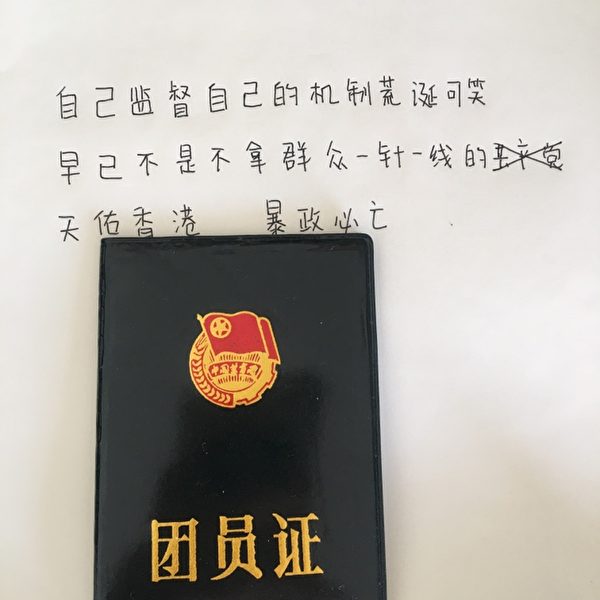 自己监督自己的机制荒诞可笑
早已不是不拿群众一针一线的共产党
天佑香港 暴政必亡
中国共青团
团员证